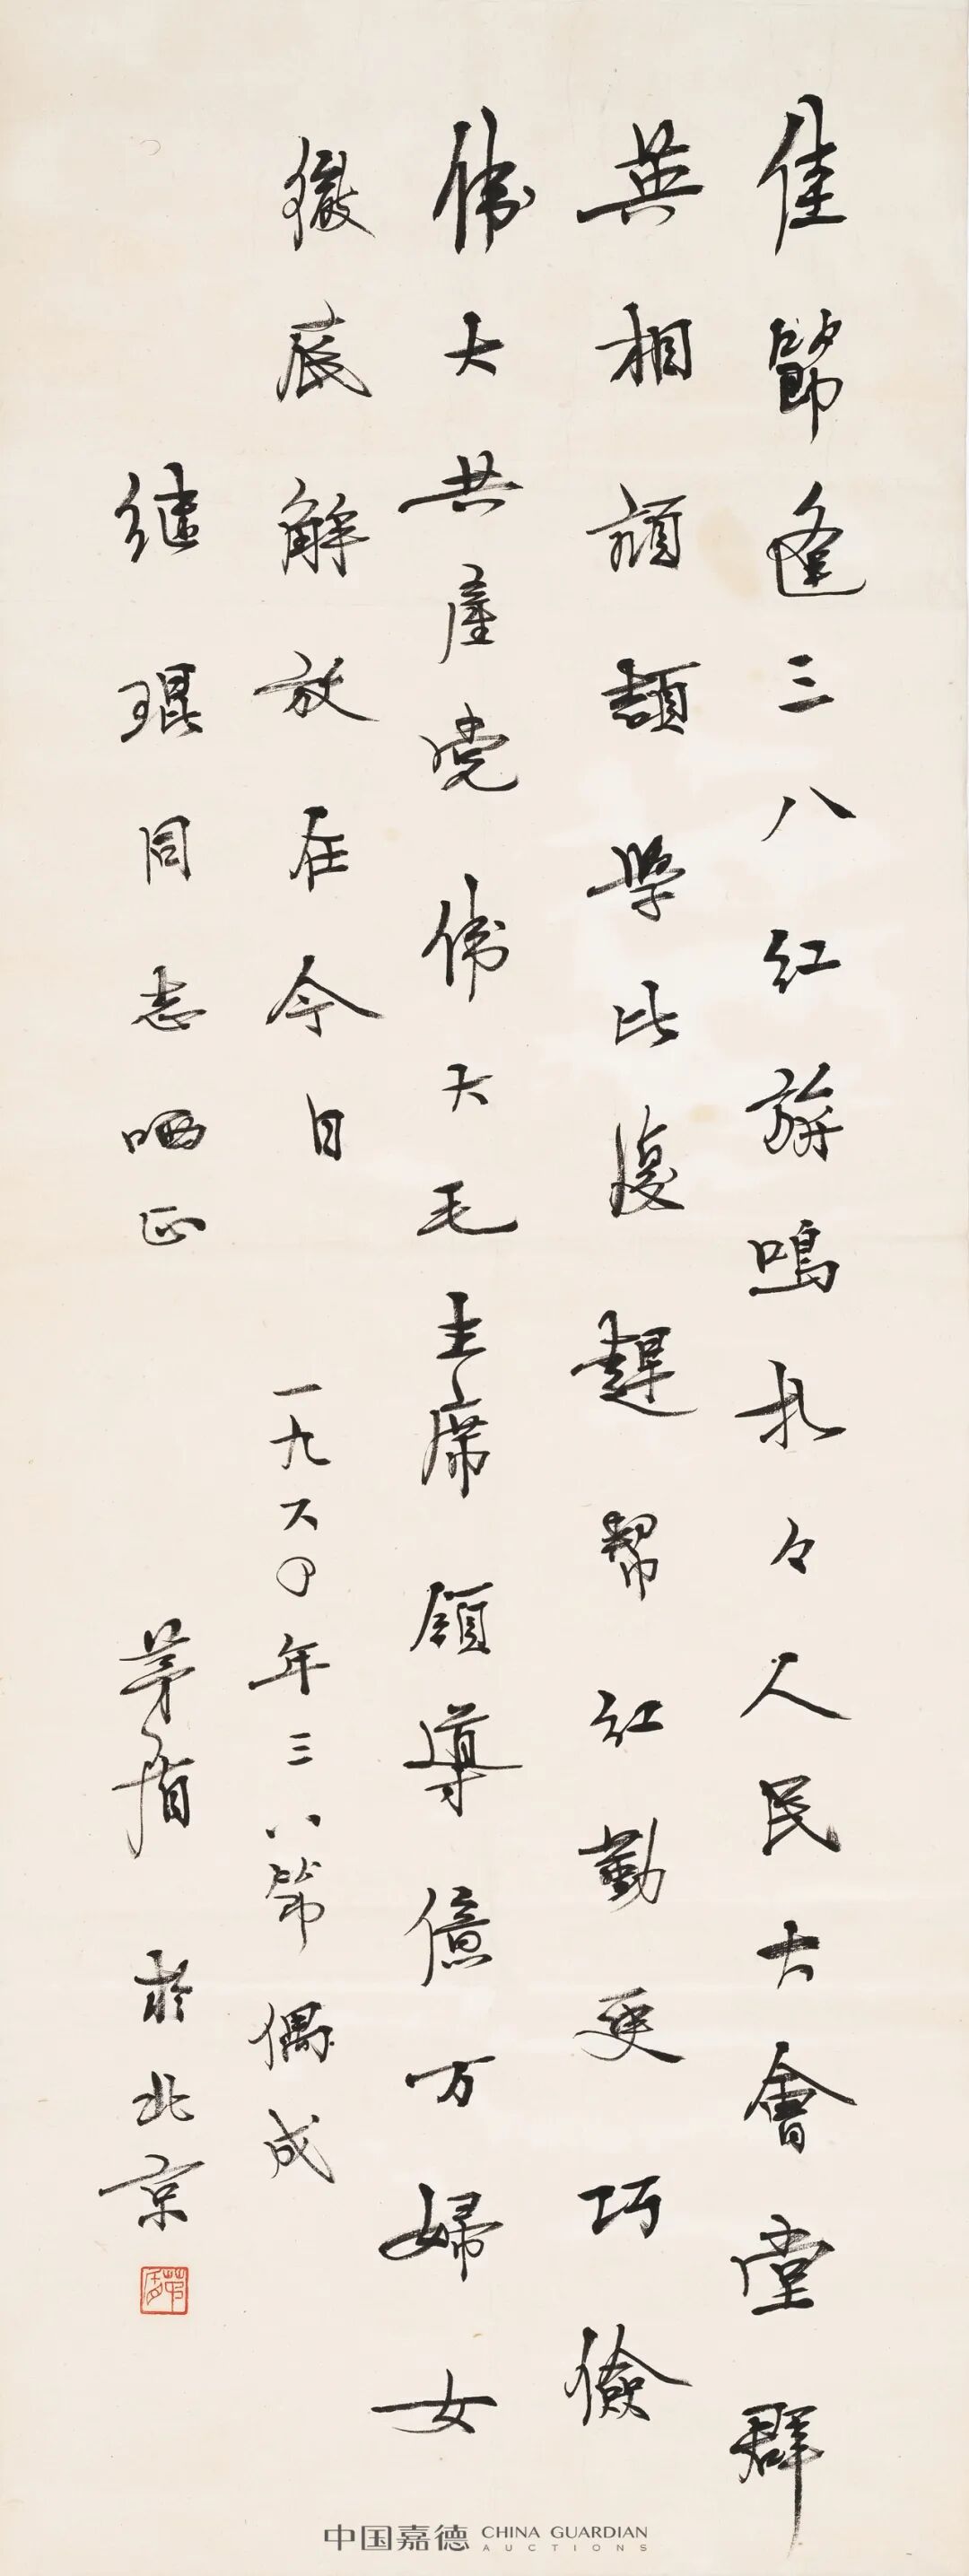 佳節逢三八紅旗鳴扎々人民大會堂群
英相頡頏學比復趕幫紅勤更巧儉
偉大共產党偉大毛主席領導億万婦女
徹底解放在今日 一九六〇年三八節偶成
继琨同志哂正 茅盾於北京
茅盾
中国嘉德 CHINA GUARDIAN
AUCTIONS